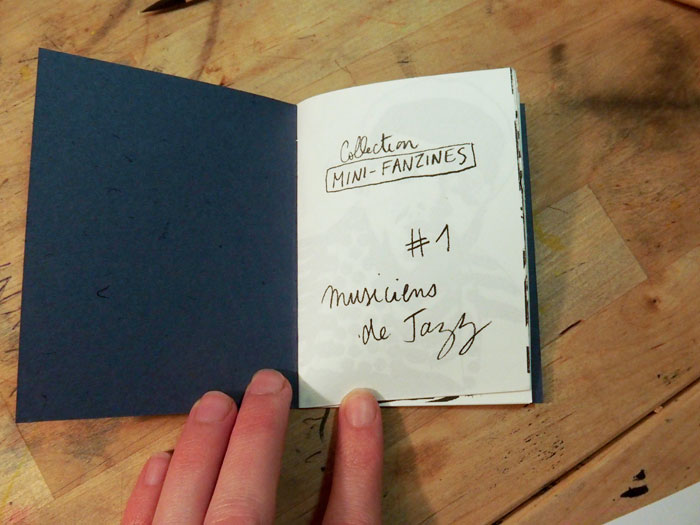 Collection
MINI-FANZINES
#1
musiciens
de Jazz